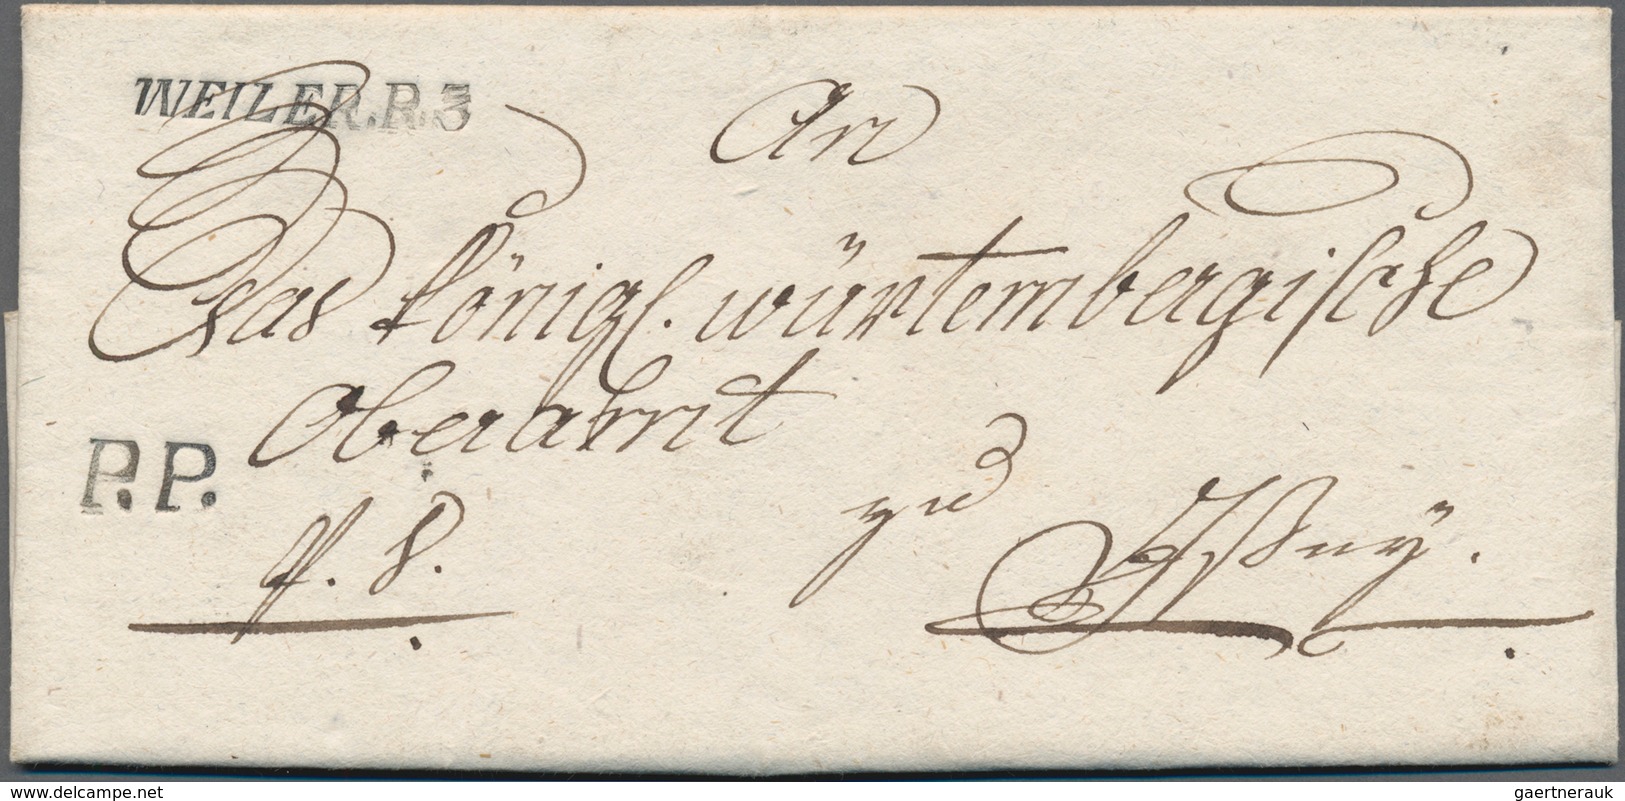 WEILER.R.3
An
das königl. würtembergische
Oberamt
P.P.
zu
Ißnÿ.
www.delcampe.net
gaertnerauk